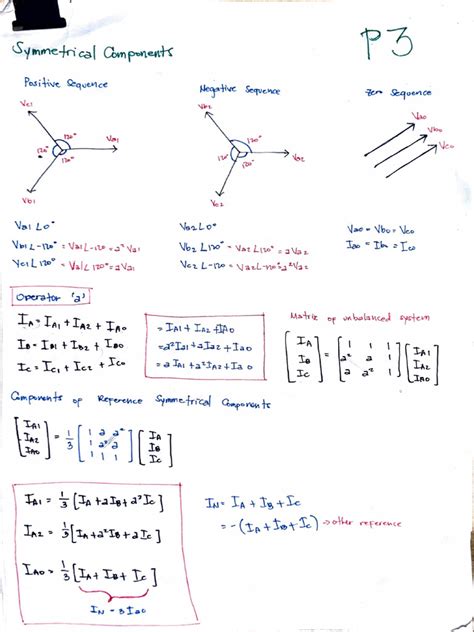 Symmetrical Components
P3
Positive Sequence
Negative Sequence
Zero Sequence
Vc1
120°
Va1
120°
120°
Vb1
Vb2
120°
Va2
120°
120°
Vc2
Va0
Vb0
Vc0
Va1∠0°
Vb1∠-120° = Va1∠-120 = a²Va1
Vc1∠120° = Va1∠120° = aVa1
Va2∠0°
Vb2∠120° = Va2∠120° = aVa2
Vc2∠-120 = Va2∠-120° = a²Va2
Va0 = Vb0 = Vc0
Ia0 = Ib0 = Ic0
Operator 'a'
IA = IA1 + IA2 + IA0
IB = IB1 + IB2 + IB0
IC = IC1 + IC2 + IC0
= IA1 + IA2 + IA0
= a²IA1 + aIA2 + IA0
= aIA1 + a²IA2 + IA0
Matrix of unbalanced system
[IA IB IC] = [1 1 1 a² a 1 a a² 1] [IA1 IA2 IA0]
Components of Reference Symmetrical Components
[IA1 IA2 IA0] = 1/3 [1 a a² 1 a² a 1 1 1] [IA IB IC]
IA1 = 1/3 [IA + aIB + a²IC]
IA2 = 1/3 [IA + a²IB + aIC]
IA0 = 1/3 [IA + IB + IC]
IN = 3IA0
IN = IA + IB + IC
= -(IA + IB + IC) → other reference